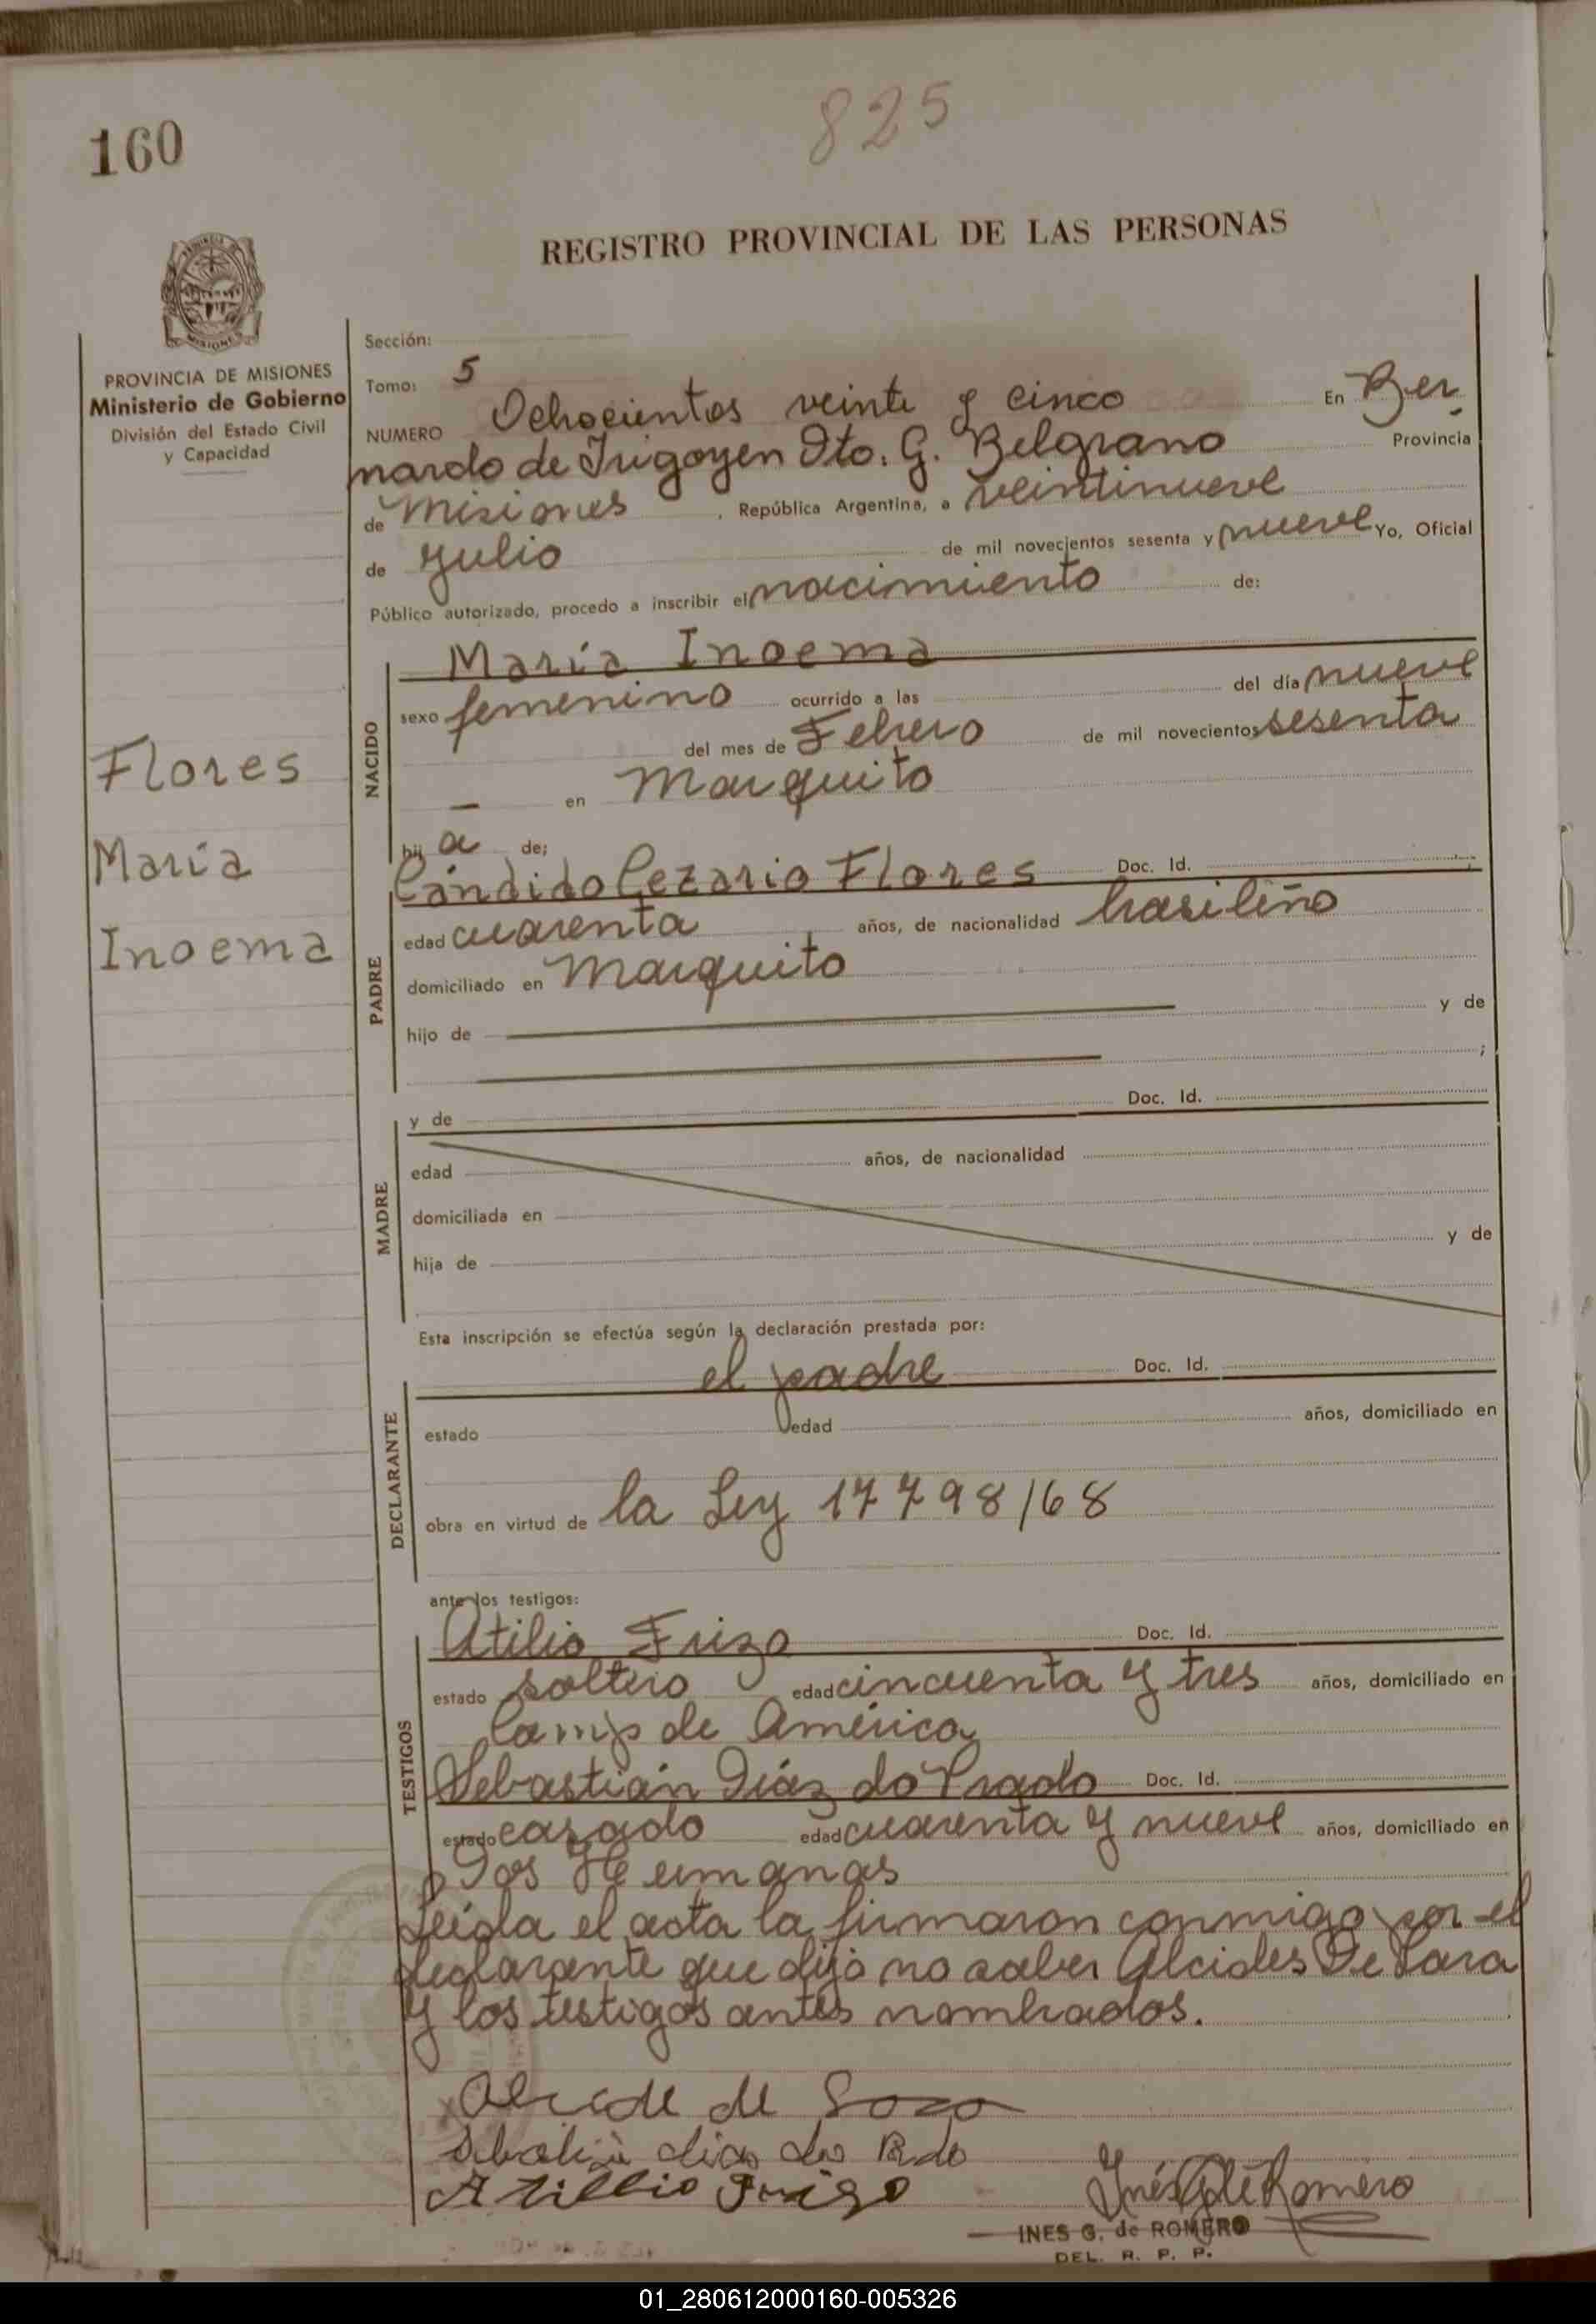 160
825
REGISTRO PROVINCIAL DE LAS PERSONAS
PROVINCIA DE MISIONES
Ministerio de Gobierno
División del Estado Civil
y Capacidad
Sección:
Tomo: 5
NUMERO Ochocientos veinte y cinco En Ber
nardo de Irigoyen Dto. G. Belgrano Provincia
de Misiones, República Argentina, a veintinueve
de Julio de mil novecientos sesenta y nueve Yo, Oficial
Público autorizado, procedo a inscribir el nacimiento de:
María Inoema
NACIDO
sexo femenino ocurrido a las del día nueve
del mes de Febrero de mil novecientos sesenta
— en Marquito
hij a de;
Flores
María
Inoema
PADRE
Cándido Cezario Flores Doc. Id.
edad cuarenta años, de nacionalidad brasileño
domiciliado en Marquito
hijo de y de
;
MADRE
y de Doc. Id.
edad años, de nacionalidad
domiciliada en
hija de y de
Esta inscripción se efectúa según la declaración prestada por:
DECLARANTE
el padre Doc. Id.
estado edad años, domiciliado en
obra en virtud de la Ley 17798/68
ante los testigos:
TESTIGOS
Atilio Frizo Doc. Id.
estado soltero edad cincuenta y tres años, domiciliado en
Camp de América
Sebastián Diáz do Prado Doc. Id.
estado cazado edad cuarenta y nueve años, domiciliado en
Dos Hermanas
Leída el acta la firmaron conmigo por el
declarante que dijo no saber Alcides De Sara
y los testigos antes nombrados.
de
dias do
Atillio Frigo
Romero
INES G. de ROMERO
DEL. R. P. P.
01_280612000160-005326